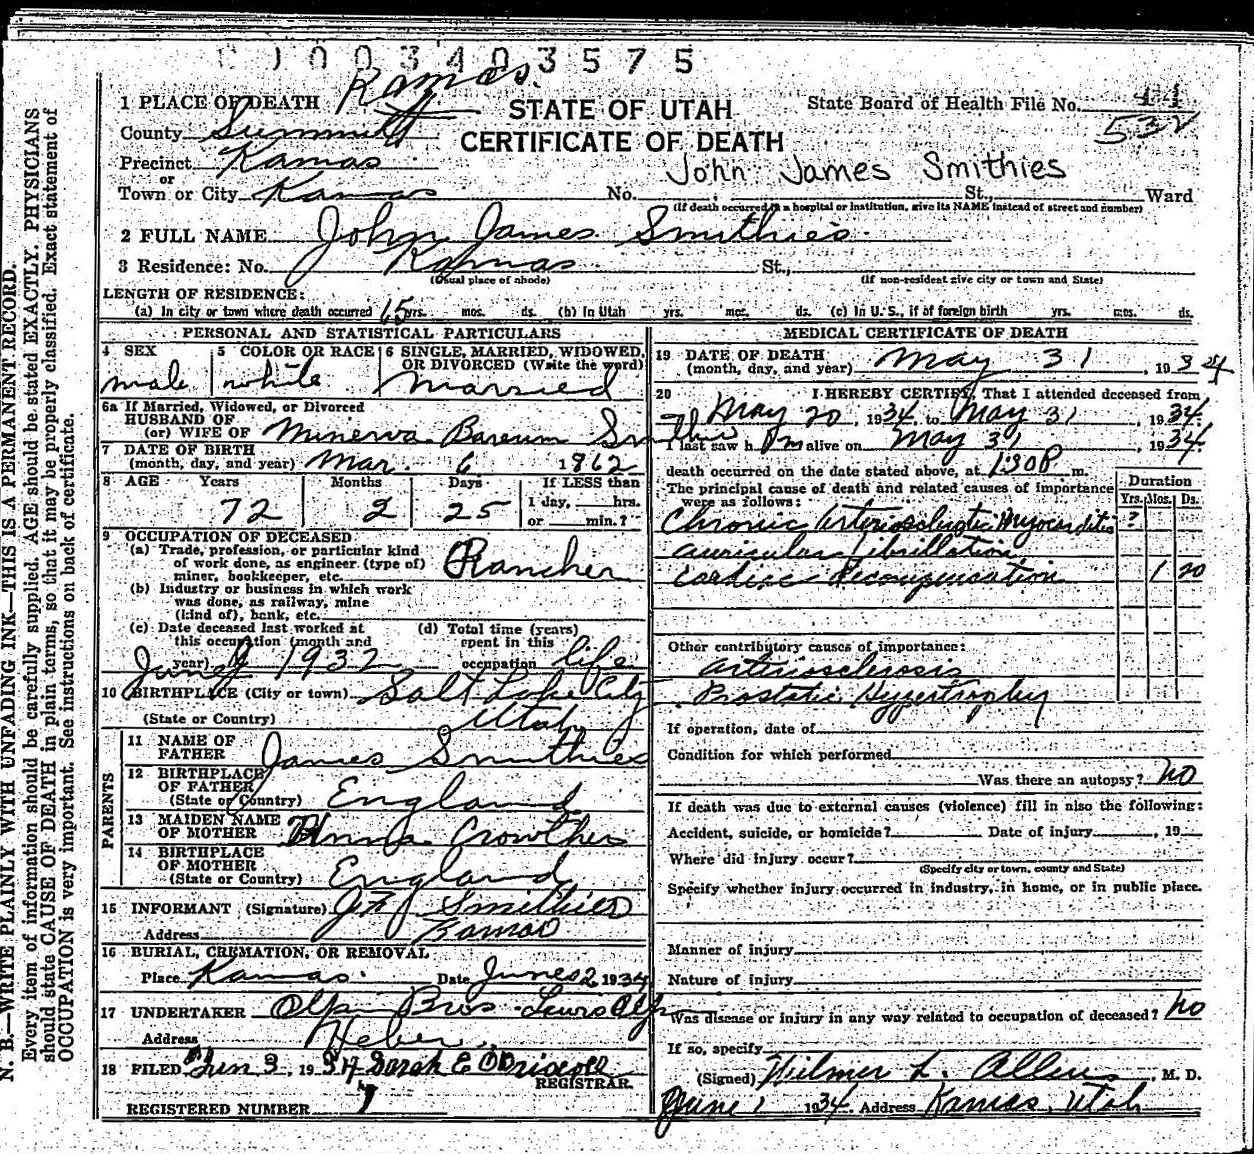 0 0 3 4 0 3 5 7 5
Kamas.
1 PLACE OF DEATH
STATE OF UTAH
State Board of Health File No. 44
532
County Summitt
CERTIFICATE OF DEATH
Precinct Kamas
John James Smithies
or
Town or City Kamas No. St., Ward
(If death occurred in a hospital or institution, give its NAME instead of street and number)
2 FULL NAME John James Smithies
3 Residence: No. Kamas St.,
(Usual place of abode) (If non-resident give city or town and State)
LENGTH OF RESIDENCE:
(a) In city or town where death occurred 65 yrs. mos. ds. (b) In Utah yrs. mos. ds. (c) In U. S., if of foreign birth yrs. mos. ds.
PERSONAL AND STATISTICAL PARTICULARS
4 SEX 5 COLOR OR RACE 6 SINGLE, MARRIED, WIDOWED, OR DIVORCED (Write the word)
male white Married
6a If Married, Widowed, or Divorced
HUSBAND OF
(or) WIFE OF Minerva Barnum Smithies
7 DATE OF BIRTH
(month, day, and year) Mar. 6 1862
8 AGE Years Months Days If LESS than
1 day, hrs.
72 2 25 or min.?
9 OCCUPATION OF DECEASED
(a) Trade, profession, or particular kind
of work done, as engineer (type of)
miner, bookkeeper, etc. Rancher
(b) Industry or business in which work
was done, as railway, mine
(kind of), bank, etc.
(c) Date deceased last worked at
this occupation (month and
year) June 1932
(d) Total time (years)
spent in this
occupation life
10 BIRTHPLACE (City or town) Salt Lake City
(State or Country) Utah
PARENTS
11 NAME OF
FATHER James Smithies
12 BIRTHPLACE
OF FATHER
(State or Country) England
13 MAIDEN NAME
OF MOTHER Crowther
14 BIRTHPLACE
OF MOTHER
(State or Country) England
15 INFORMANT (Signature) Smithies
Address Kamas
16 BURIAL, CREMATION, OR REMOVAL
Place Kamas. Date June 2 1934
17 UNDERTAKER Olpin Bros
Address Heber
18 FILED Jun 3, 1934 Sarah E O Driscoll
REGISTRAR.
REGISTERED NUMBER 7
MEDICAL CERTIFICATE OF DEATH
19 DATE OF DEATH
(month, day, and year) May 31, 1934
20 I HEREBY CERTIFY, That I attended deceased from
May 20, 1934, to May 31, 1934.
I last saw him alive on May 31, 1934.
death occurred on the date stated above, at 1:30 P m.
The principal cause of death and related causes of importance
were as follows:
Duration
Yrs. Mos. Ds.
Chronic Arteriosclerotic Myocarditis ?
auricular fibrillation
Cardiac Decompensation 1 20
Other contributory causes of importance:
arteriosclerosis
Prostatic Hypertrophy
If operation, date of
Condition for which performed
Was there an autopsy? no
If death was due to external causes (violence) fill in also the following:
Accident, suicide, or homicide? Date of injury , 19
Where did injury occur?
(Specify city or town, county and State)
Specify whether injury occurred in industry, in home, or in public place.
Manner of injury
Nature of injury
Was disease or injury in any way related to occupation of deceased? no
If so, specify
(Signed) Wilmer L. Allen, M. D.
June 1 1934. Address Kamas, Utah
N. B.—WRITE PLAINLY WITH UNFADING INK—THIS IS A PERMANENT RECORD.
Every item of information should be carefully supplied. AGE should be stated EXACTLY. PHYSICIANS
should state CAUSE OF DEATH in plain terms, so that it may be properly classified. Exact statement of
OCCUPATION is very important. See instructions on back of certificate.